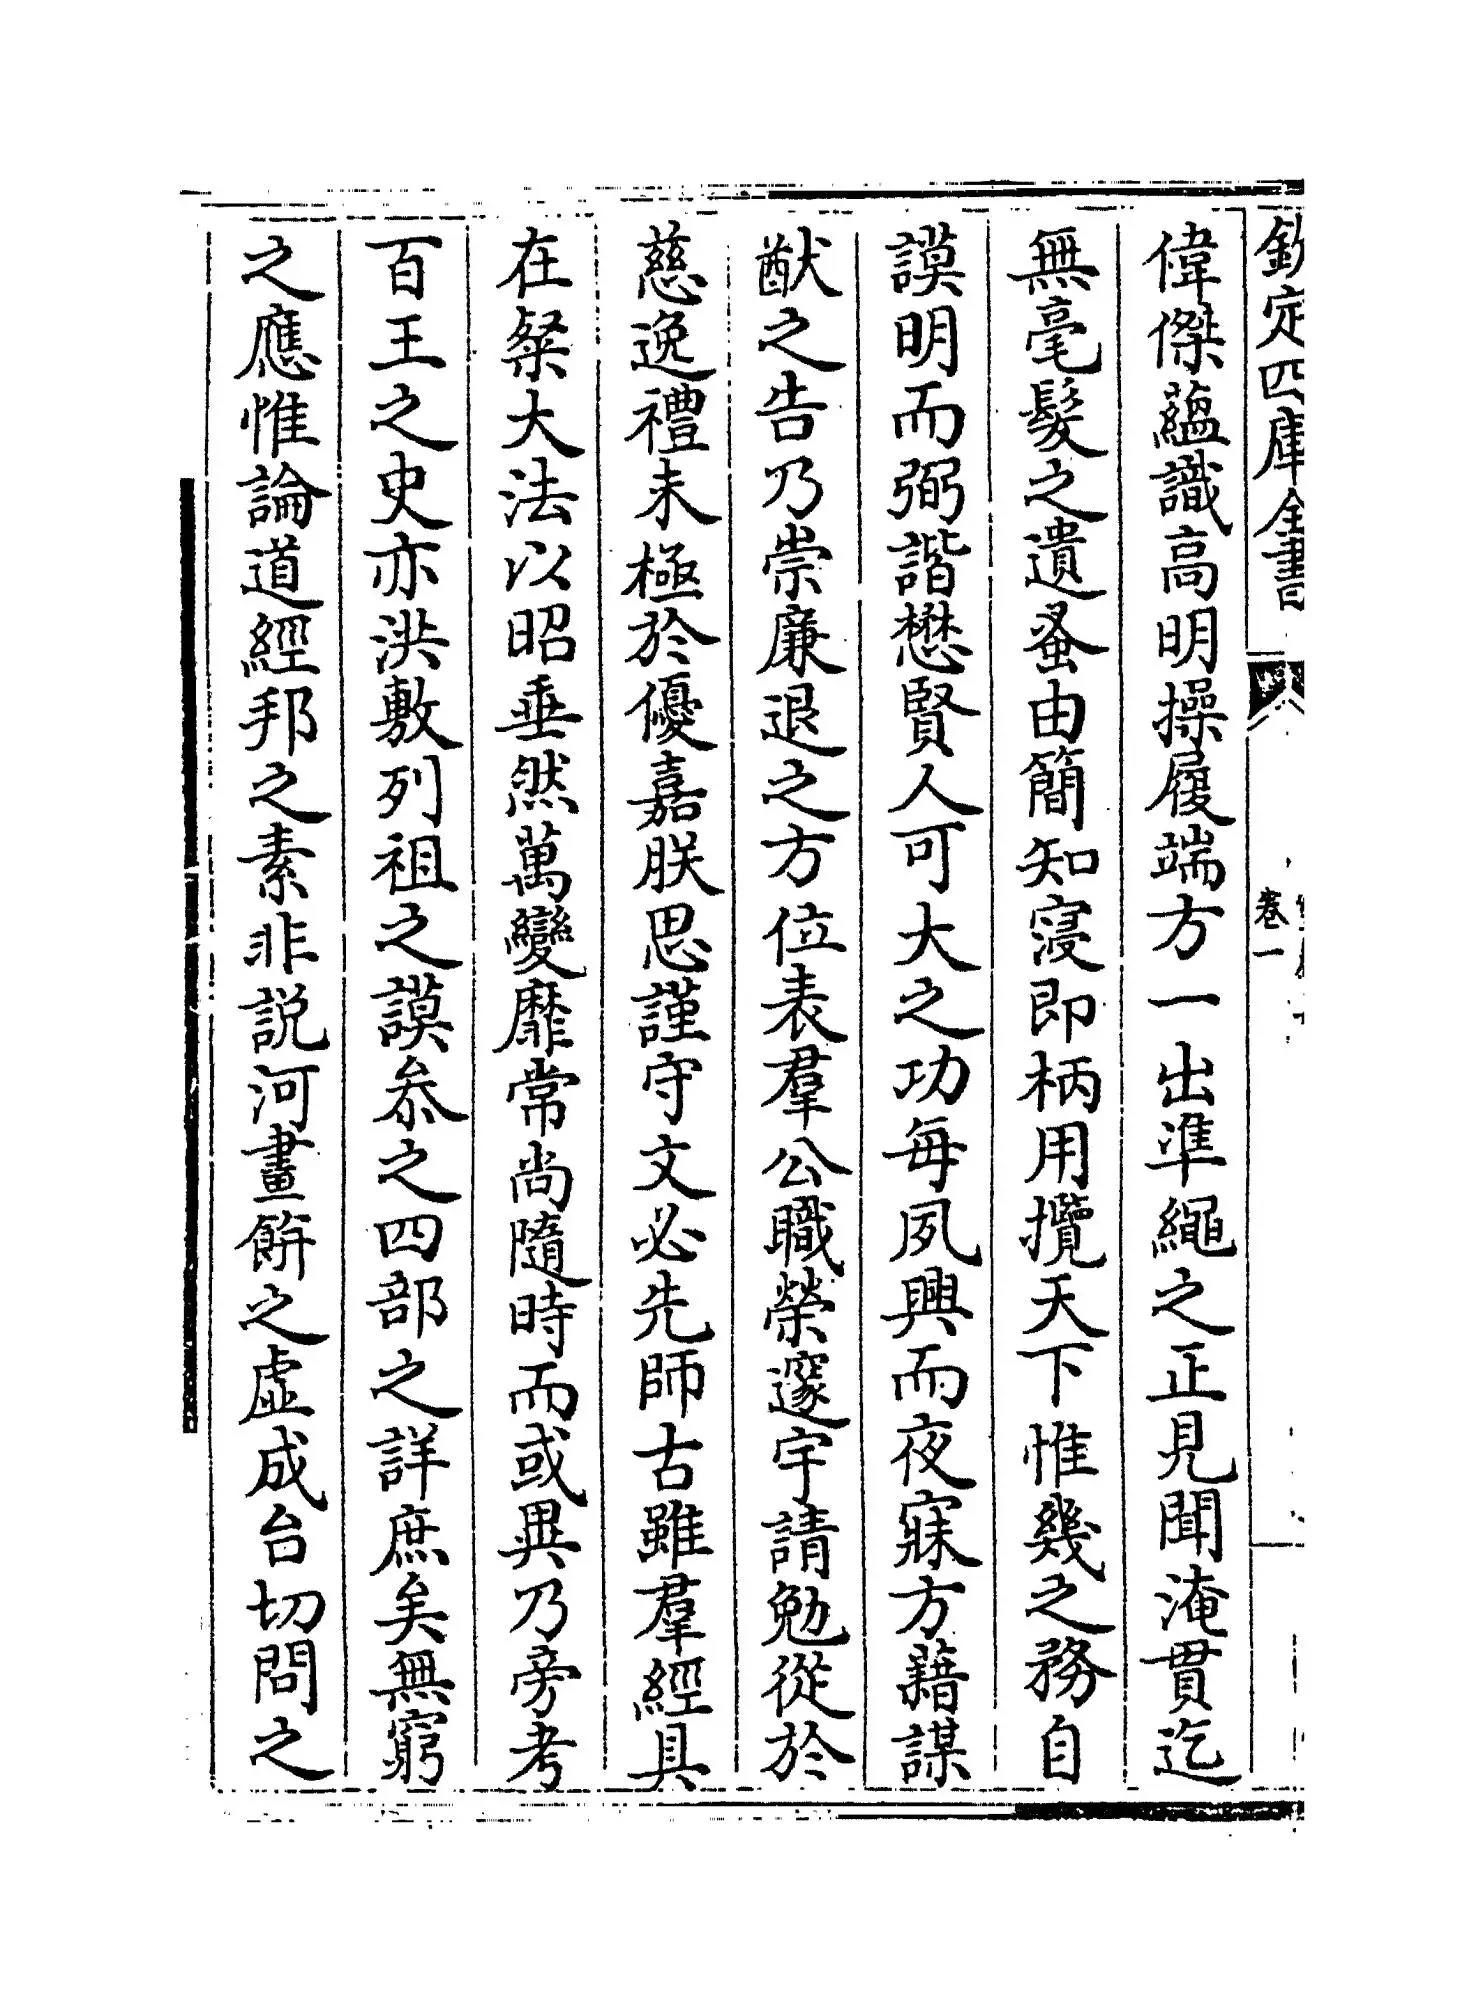 欽定四庫全書
卷一
偉傑藴識高明操履端方一出凖繩之正見聞淹貫迄
無毫髮之遺蚤由簡知寖即柄用攬天下惟幾之務自
謨明而弼諧懋賢人可大之功每夙興而夜寐方藉謀
猷之告乃崇廉退之方位表羣公職榮邃宇請勉從於
慈逸禮未極於優嘉朕思謹守文必先師古雖羣經具
在粲大法以昭垂然萬變靡常尚隨時而或異乃旁考
百王之史亦洪敷列祖之謨叅之四部之詳庶矣無窮
之應惟論道經邦之素非説河畫餅之虚成台切問之